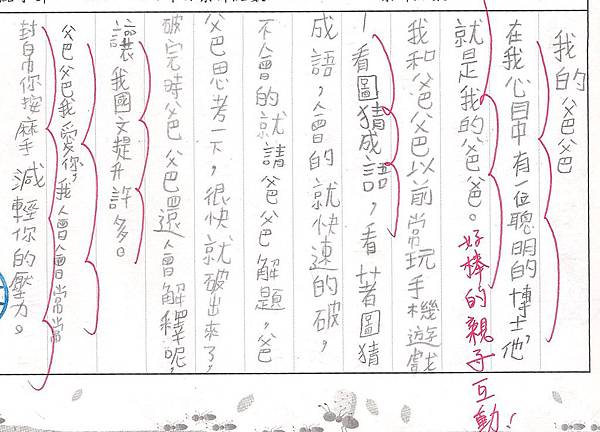 我的爸爸
在我心目中有一位聰明的博士他,
就是我的爸爸。好棒的親子互動!
我和爸爸以前常玩手機遊戲
—看圖猜成語,看著圖猜
成語,會的就快速的破,
不會的就請爸爸解題,爸
爸思考一下,很快就破出來了,
破完時爸爸還會解釋呢,
讓我國文提升許多。
爸爸我愛你,我會會常常
幫你按摩減輕你的壓力。